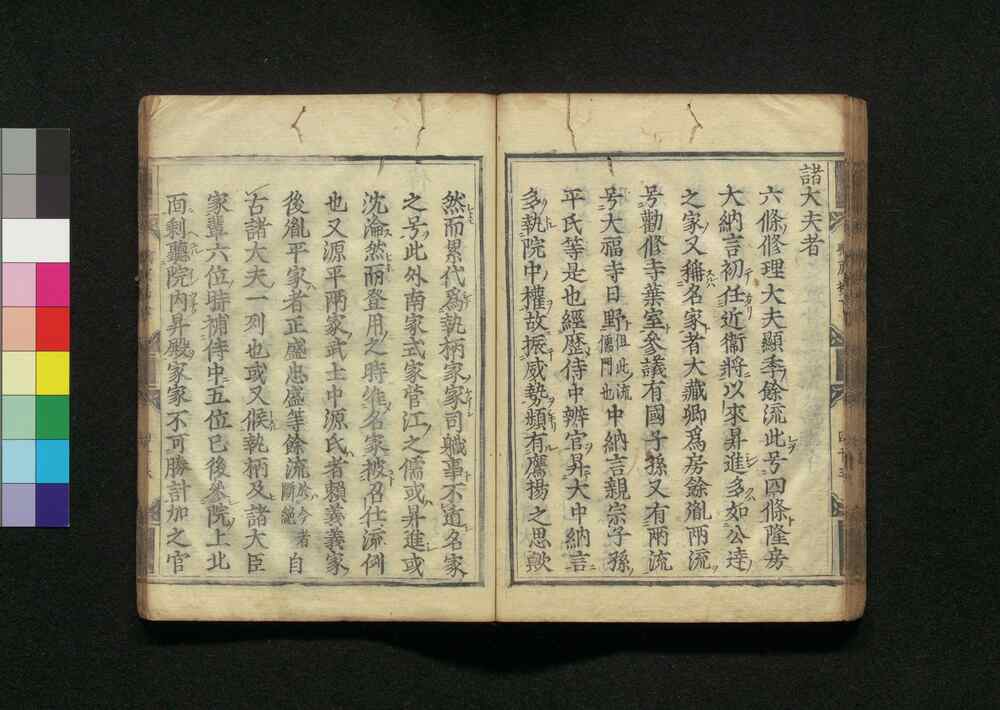 諸大夫者
六條修理大夫顯季餘流此号四條隆房
大納言初任近衞將以來昇進多如公達
之家又稱名家者大藏卿爲房餘胤兩流
号勸修寺葉室參議有國子孫又有兩流
号大福寺日野但此流儒門也中納言親宗子孫
平氏等是也經歷侍中辨官昇大中納言
多執院中權故振威勢頗有鷹揚之思歟
然而累代爲執柄家家司職事不道名家
之号此外南家式家菅江之儒或昇進或
沈淪然而登用之時准名家被召仕流例
也又源平兩家武士中源氏者賴義義家
後胤平家者正盛忠盛等餘流於今者斷絶自
古諸大夫一列也或又候執柄及諸大臣
家輩六位時補侍中五位已後參院上北
面剩聽院内昇殿家家不可勝計加之官